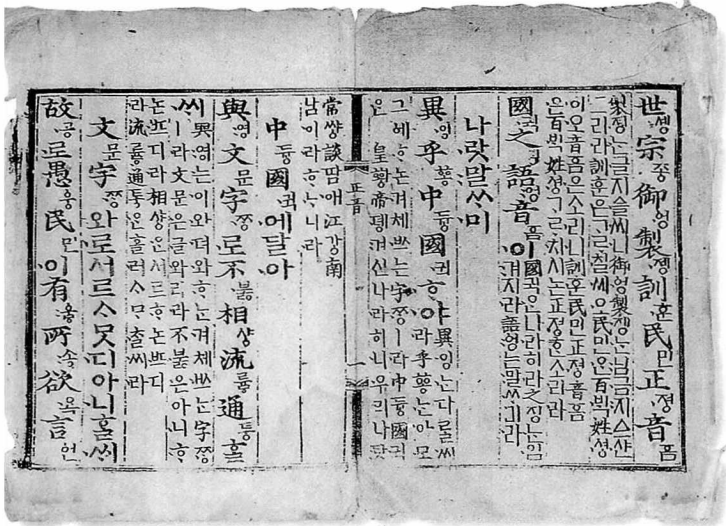 世솅宗조ᇰ御ᅌᅥᆼ製졩訓훈民민正져ᇰ音ᅙᅳᆷ
製졩는글지ᅀᅳᆯ씨니御ᅌᅥᆼ製졩는님금지ᅀᅳ샨
그리라訓훈은ᄀᆞᄅᆞ칠씨오民민ᄋᆞᆫ百ᄇᆡᆨ姓셔ᇰ
이오音ᅙᅳᆷ은소리니訓훈民민正져ᇰ音ᅙᅳᆷ
은百ᄇᆡᆨ姓셔ᇰᄀᆞᄅᆞ치시논正져ᇰᄒᆞᆫ소리라
國귁之징語ᅌᅥᆼ音ᅙᅳᆷ이國귁ᄋᆞᆫ나라히라之징ᄂᆞᆫ입
겨지라語ᅌᅥᆼ는말ᄊᆞ미라
나랏말ᄊᆞ미
異잉乎ᅘᅩᆼ中듀ᇰ國귁ᄒᆞ야異잉ᄂᆞᆫ다ᄅᆞᆯ씨
라乎ᅘᅩᆼᄂᆞᆫ아모
그ᅌᅦᄒᆞ논겨체ᄡᅳ는字ᄍᆞᆼㅣ라中듀ᇰ國귁
ᄋᆞᆫ皇ᅘᅪᇰ帝뎽겨신나라히니우리나랏
正音
常쌰ᇰ談땀애江가ᇰ南
남이라ᄒᆞᄂᆞ니라
中듀ᇰ國귁에달아
與영文문字ᄍᆞᆼ로不부ᇙ相샤ᇰ流류ᇢ通토ᇰᄒᆞᆯ
ᄊᆡ與영는이와뎌와ᄒᆞ는겨체ᄡᅳ는字ᄍᆞᆼ
ㅣ라文문은글와리라不부ᇙ은아니ᄒᆞ
논ᄠᅳ디라相샤ᇰᄋᆞᆫ서르ᄒᆞ논ᄠᅳ디
라流류ᇢ通토ᇰᄋᆞᆫ흘러ᄉᆞᄆᆞᄎᆞᆯ씨라
文문字ᄍᆞᆼ와로서르ᄉᆞᄆᆞᆺ디아니ᄒᆞᆯᄊᆡ
故공로愚ᅌᅮᆼ民민이有우ᇢ所송欲욕言ᅌᅥᆫ